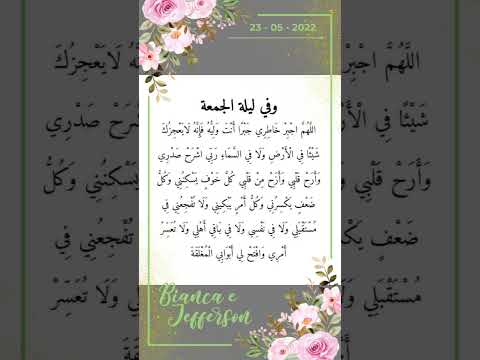 23 - 05 - 2022
وفي ليلة الجمعة
اللَّهُمَّ اجْبِرْ خَاطِرِي جَبْرًا أَنْتَ وَلِيُّهُ فَإِنَّهُ لَايَعْجِزُكَ
شَيْئًا فِي الْأَرْضِ وَلَا فِي السَّمَاءِ رَبِّي اشْرَحْ صَدْرِي
وَأَرِحْ قَلْبِي وَأَزِحْ مِنْ قَلْبِي كُلَّ خَوْفٍ يَسْكِنُنِي وَكُلَّ
ضَعْفٍ يَكْسِرُنِي وَكُلَّ أَمْرٍ يُبْكِينِي وَلَا تَفْجَعْنِي فِي
مُسْتَقْبَلِي وَلَا فِي نَفْسِي وَلَا فِي بَاقِي أَهْلِي وَلَا تُعَسِّرْ
أَمْرِي وَافْتَحْ لِي أَبْوَابِي الْمُغْلَقَةَ
Bianca e
Jefferson